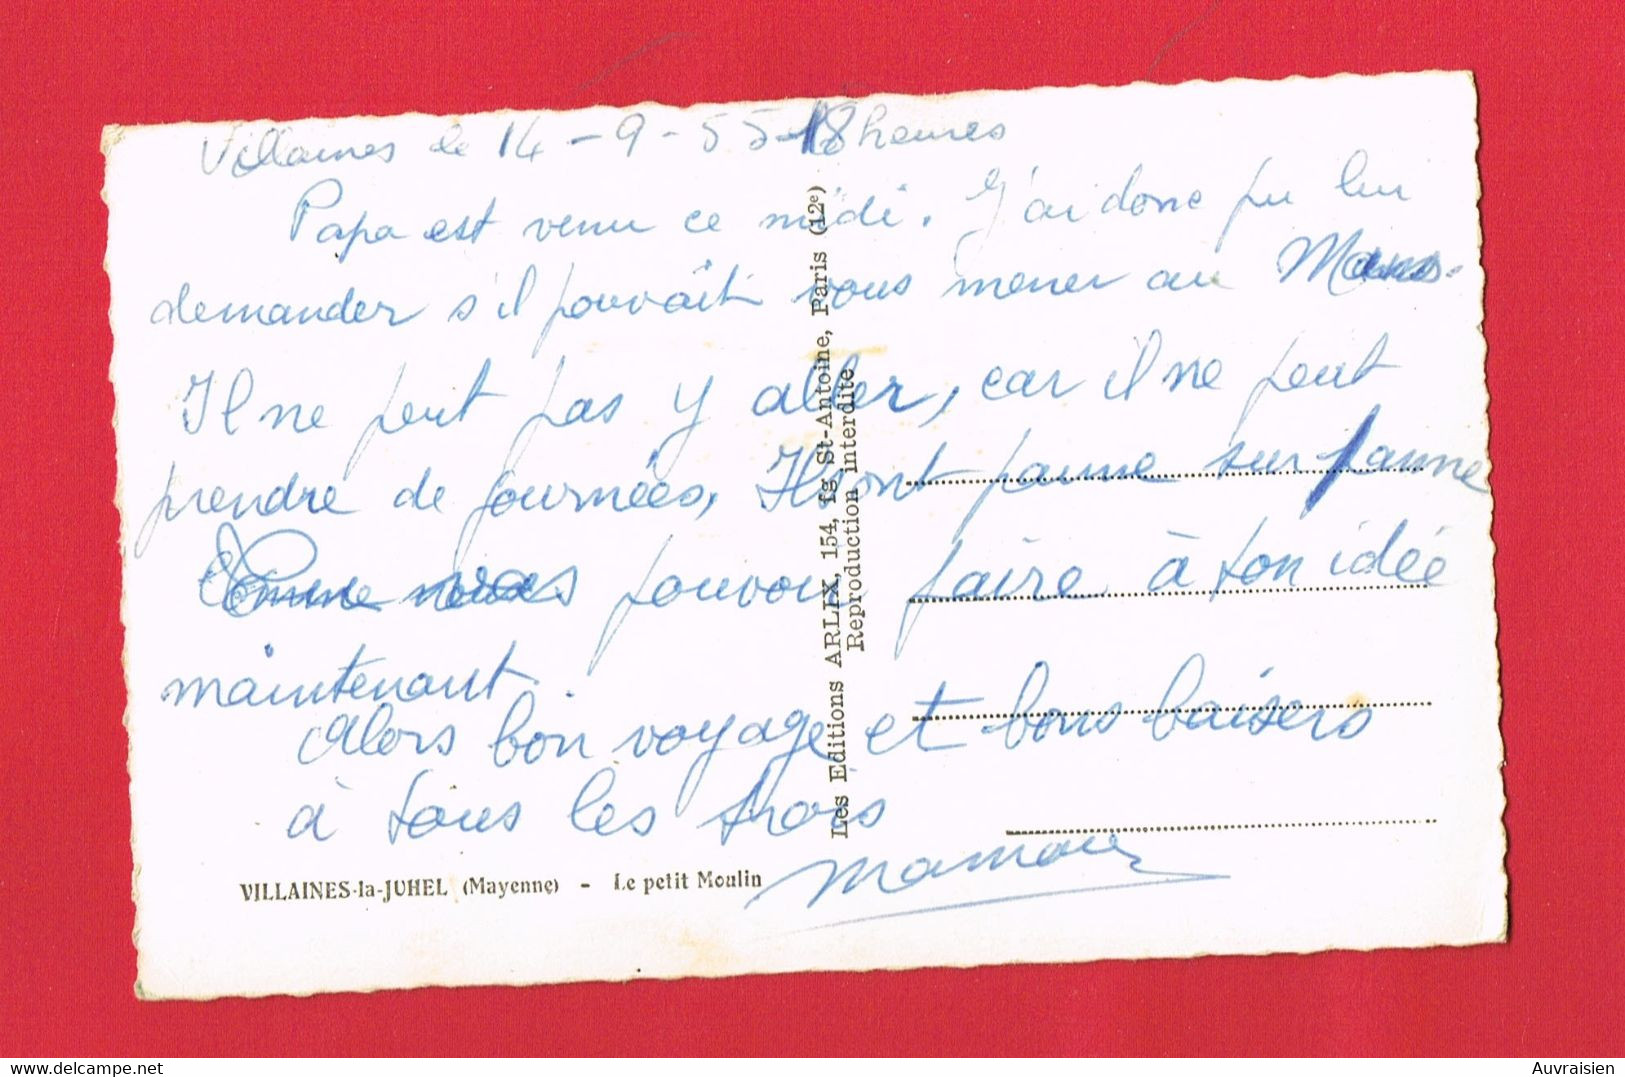 Villaines le 14-9-55-18 heures
Papa est venu ce midi. J'ai donc pu lui
demander s'il pouvait vous mener au Mans.
Il ne peut pas y aller, car il ne peut
prendre de journées, Ils ont panne sur panne
vous pouvez faire à ton idée
maintenant.
Alors bon voyage et bons baisers
à tous les trois
Maman
VILLAINES-la-JUHEL (Mayenne) - Le petit Moulin
Les Editions ARLIX, 154, fg St-Antoine, Paris (12e)
Reproduction interdite
Auvraisien